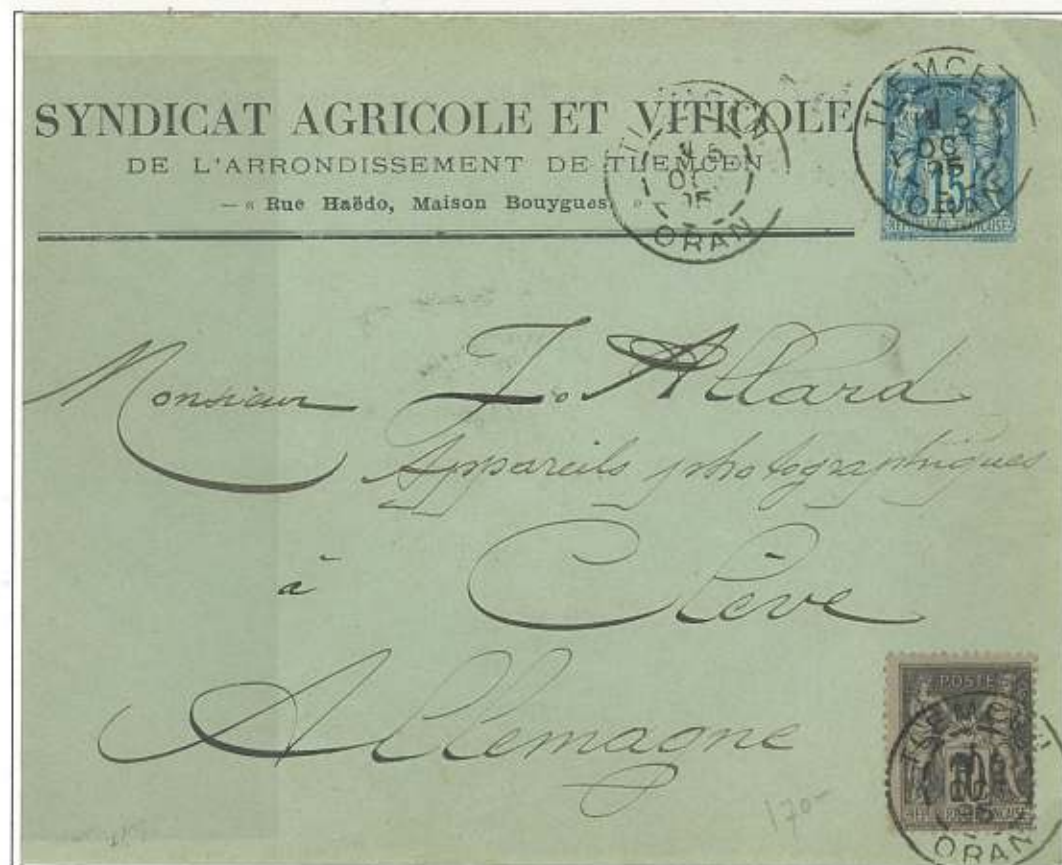 SYNDICAT AGRICOLE ET VITICOLE
DE L'ARRONDISSEMENT DE TLEMCEN
— « Rue Haëdo, Maison Bouygues. » —
TLEMCEN
5
OCT
95
ORAN
TLEMCEN
5
OCT
95
ORAN
15
RÉPUBLIQUE FRANÇAISE
Monsieur J. Allard
Appareils photographiques
à Clève
Allemagne
POSTE
TLEMCEN
10
OCT
95
ORAN
170-